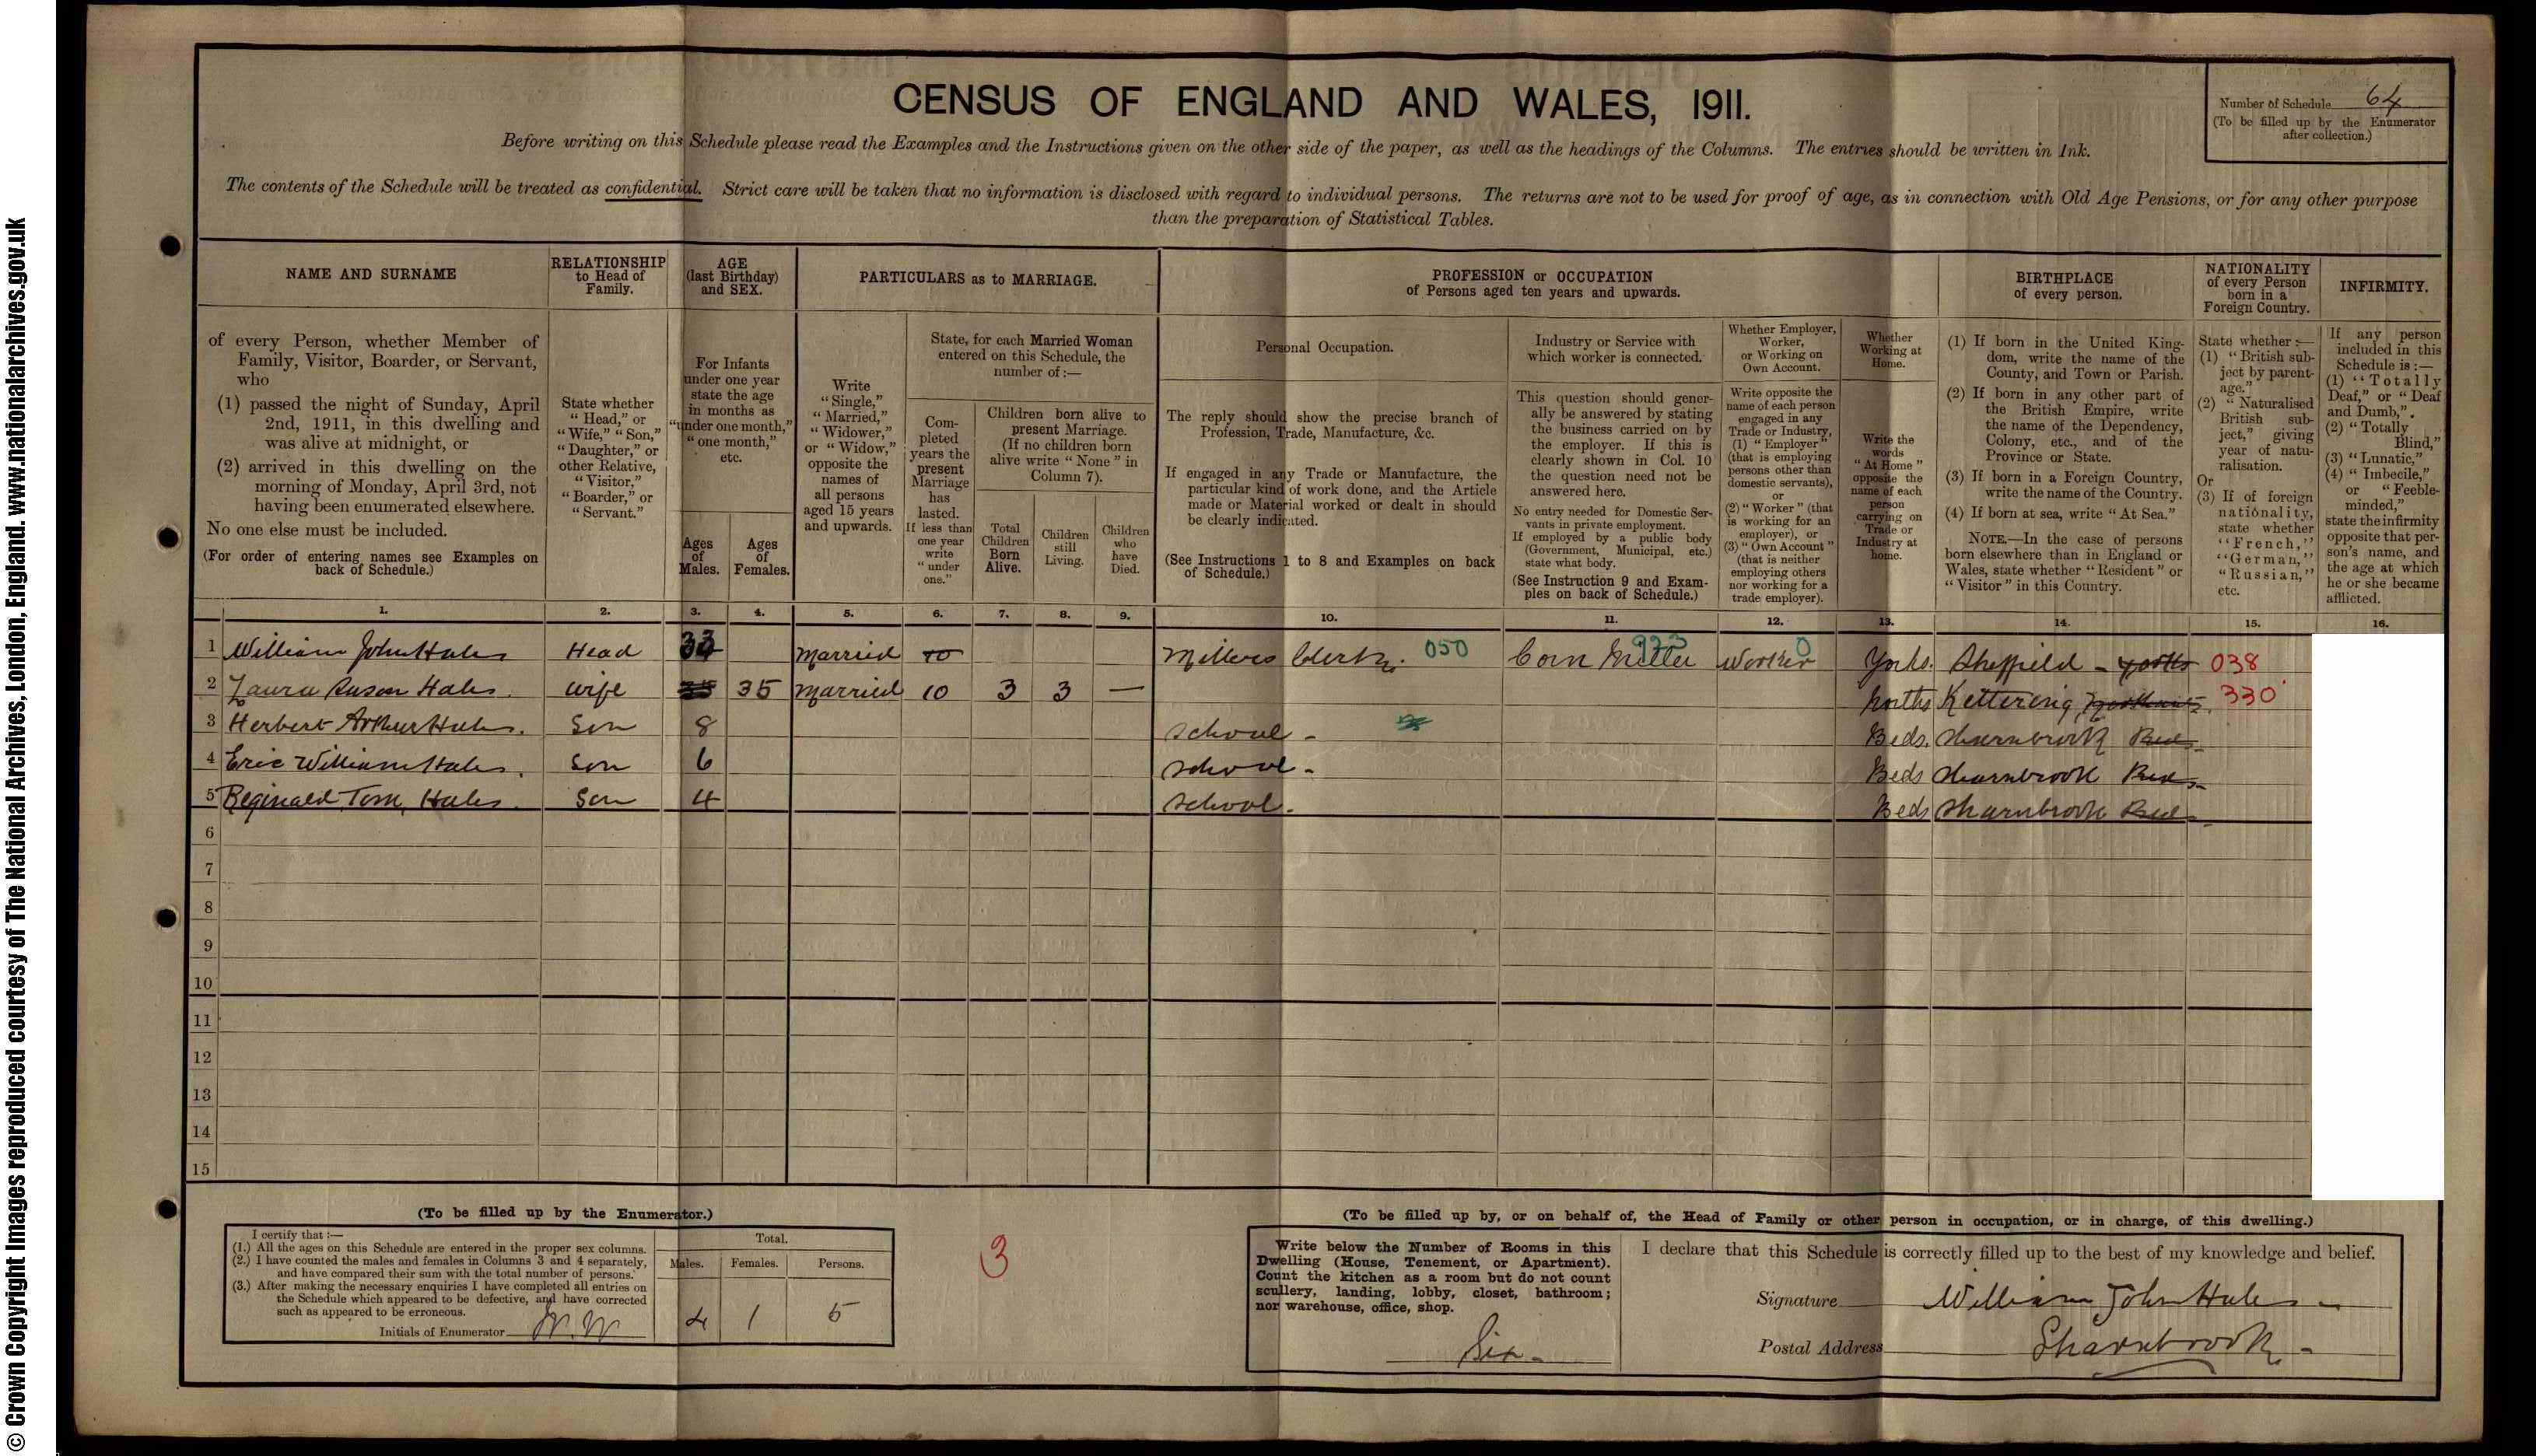 © Crown Copyright Images reproduced courtesy of The National Archives, London, England. www.nationalarchives.gov.uk
CENSUS OF ENGLAND AND WALES, 1911.
Number of Schedule 64
(To be filled up by the Enumerator
after collection.)
Before writing on this Schedule please read the Examples and the Instructions given on the other side of the paper, as well as the headings of the Columns. The entries should be written in Ink.
The contents of the Schedule will be treated as confidential. Strict care will be taken that no information is disclosed with regard to individual persons. The returns are not to be used for proof of age, as in connection with Old Age Pensions, or for any other purpose
than the preparation of Statistical Tables.
NAME AND SURNAME
of every Person, whether Member of
Family, Visitor, Boarder, or Servant,
who
(1) passed the night of Sunday, April
2nd, 1911, in this dwelling and
was alive at midnight, or
(2) arrived in this dwelling on the
morning of Monday, April 3rd, not
having been enumerated elsewhere.
No one else must be included.
(For order of entering names see Examples on
back of Schedule.)
RELATIONSHIP
to Head of
Family.
State whether
"Head," or
"Wife," "Son,"
"Daughter," or
other Relative,
"Visitor,"
"Boarder," or
"Servant."
AGE
(last Birthday)
and SEX.
For Infants
under one year
state the age
in months as
"under one month,"
"one month,"
etc.
Ages
of
Males.
Ages
of
Females.
PARTICULARS as to MARRIAGE.
Write
"Single,"
"Married,"
"Widower,"
or "Widow,"
opposite the
names of
all persons
aged 15 years
and upwards.
State, for each Married Woman
entered on this Schedule, the
number of:—
Com-
pleted
years the
present
Marriage
has
lasted.
If less than
one year
write
"under
one."
Children born alive to
present Marriage.
(If no children born
alive write "None" in
Column 7).
Total
Children
Born
Alive.
Children
still
Living.
Children
who
have
Died.
PROFESSION or OCCUPATION
of Persons aged ten years and upwards.
Personal Occupation.
The reply should show the precise branch of
Profession, Trade, Manufacture, &c.
If engaged in any Trade or Manufacture, the
particular kind of work done, and the Article
made or Material worked or dealt in should
be clearly indicated.
(See Instructions 1 to 8 and Examples on back
of Schedule.)
Industry or Service with
which worker is connected.
This question should gener-
ally be answered by stating
the business carried on by
the employer. If this is
clearly shown in Col. 10
the question need not be
answered here.
No entry needed for Domestic Ser-
vants in private employment.
If employed by a public body
(Government, Municipal, etc.)
state what body.
(See Instruction 9 and Exam-
ples on back of Schedule.)
Whether Employer,
Worker,
or Working on
Own Account.
Write opposite the
name of each person
engaged in any
Trade or Industry,
(1) "Employer"
(that is employing
persons other than
domestic servants),
or
(2) "Worker" (that
is working for an
employer), or
(3) "Own Account"
(that is neither
employing others
nor working for a
trade employer).
Whether
Working at
Home.
Write the
words
"At Home"
opposite the
name of each
person
carrying on
Trade or
Industry at
home.
BIRTHPLACE
of every person.
(1) If born in the United King-
dom, write the name of the
County, and Town or Parish.
(2) If born in any other part of
the British Empire, write
the name of the Dependency,
Colony, etc., and of the
Province or State.
(3) If born in a Foreign Country,
write the name of the Country.
(4) If born at sea, write "At Sea."
NOTE.—In the case of persons
born elsewhere than in England or
Wales, state whether "Resident" or
"Visitor" in this Country.
NATIONALITY
of every Person
born in a
Foreign Country.
State whether:—
(1) "British sub-
ject by parent-
age."
(2) "Naturalised
British sub-
ject," giving
year of natu-
ralisation.
Or
(3) If of foreign
nationality,
state whether
"French,"
"German,"
"Russian,"
etc.
INFIRMITY.
If any person
included in this
Schedule is:—
(1) "Totally
Deaf," or "Deaf
and Dumb,"
(2) "Totally
Blind,"
(3) "Lunatic,"
(4) "Imbecile,"
or "Feeble-
minded,"
state the infirmity
opposite that per-
son's name, and
the age at which
he or she became
afflicted.
1. 2. 3. 4. 5. 6. 7. 8. 9. 10. 11. 12. 13. 14. 15. 16.
1 William John Hales Head Married 10 Millers Clerk. 050 Corn Miller 933 Worker 0 Yorks. Sheffield - Yorks 038
2 Laura Susan Hales. wife 35 35 Married 10 3 3 — Norths Kettering, Northants. 330
3 Herbert Arthur Hales. Son 8 School - Beds. Sharnbrook Beds
4 Eric William Hales. Son 6 School - Beds Sharnbrook Beds
5 Reginald Tom Hales. Son 4 School. Beds Sharnbrook Beds
6
7
8
9
10
11
12
13
14
15
(To be filled up by the Enumerator.)
I certify that:—
(1.) All the ages on this Schedule are entered in the proper sex columns.
(2.) I have counted the males and females in Columns 3 and 4 separately,
and have compared their sum with the total number of persons.
(3.) After making the necessary enquiries I have completed all entries on
the Schedule which appeared to be defective, and have corrected
such as appeared to be erroneous.
Initials of Enumerator W. W
Total.
Males. Females. Persons.
4 1 5
3
(To be filled up by, or on behalf of, the Head of Family or other person in occupation, or in charge, of this dwelling.)
Write below the Number of Rooms in this
Dwelling (House, Tenement, or Apartment).
Count the kitchen as a room but do not count
scullery, landing, lobby, closet, bathroom;
nor warehouse, office, shop.
Six -
I declare that this Schedule is correctly filled up to the best of my knowledge and belief.
Signature William John Hales -
Postal Address Sharnbrook. -